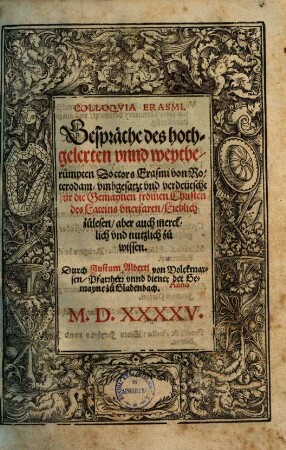 COLLOQVIA ERASMI.
Gespräche des hoch-
gelerten vnnd weytbe-
rümpten Doctors Erasmi von Ro-
terodam / vmbgesatzt vnd verdeütscht
für die Gemaynen fromen Christen
des Lateins vnerfaren / lieblich
zůlesen / aber auch merck-
lich vnd nutzlich zů
wissen.
Durch Justum Alberti von Volckmar-
sen / Pfarrherr vnnd diener der Ge-
mayne zů Gladenbach.
M. D. XXXXV.